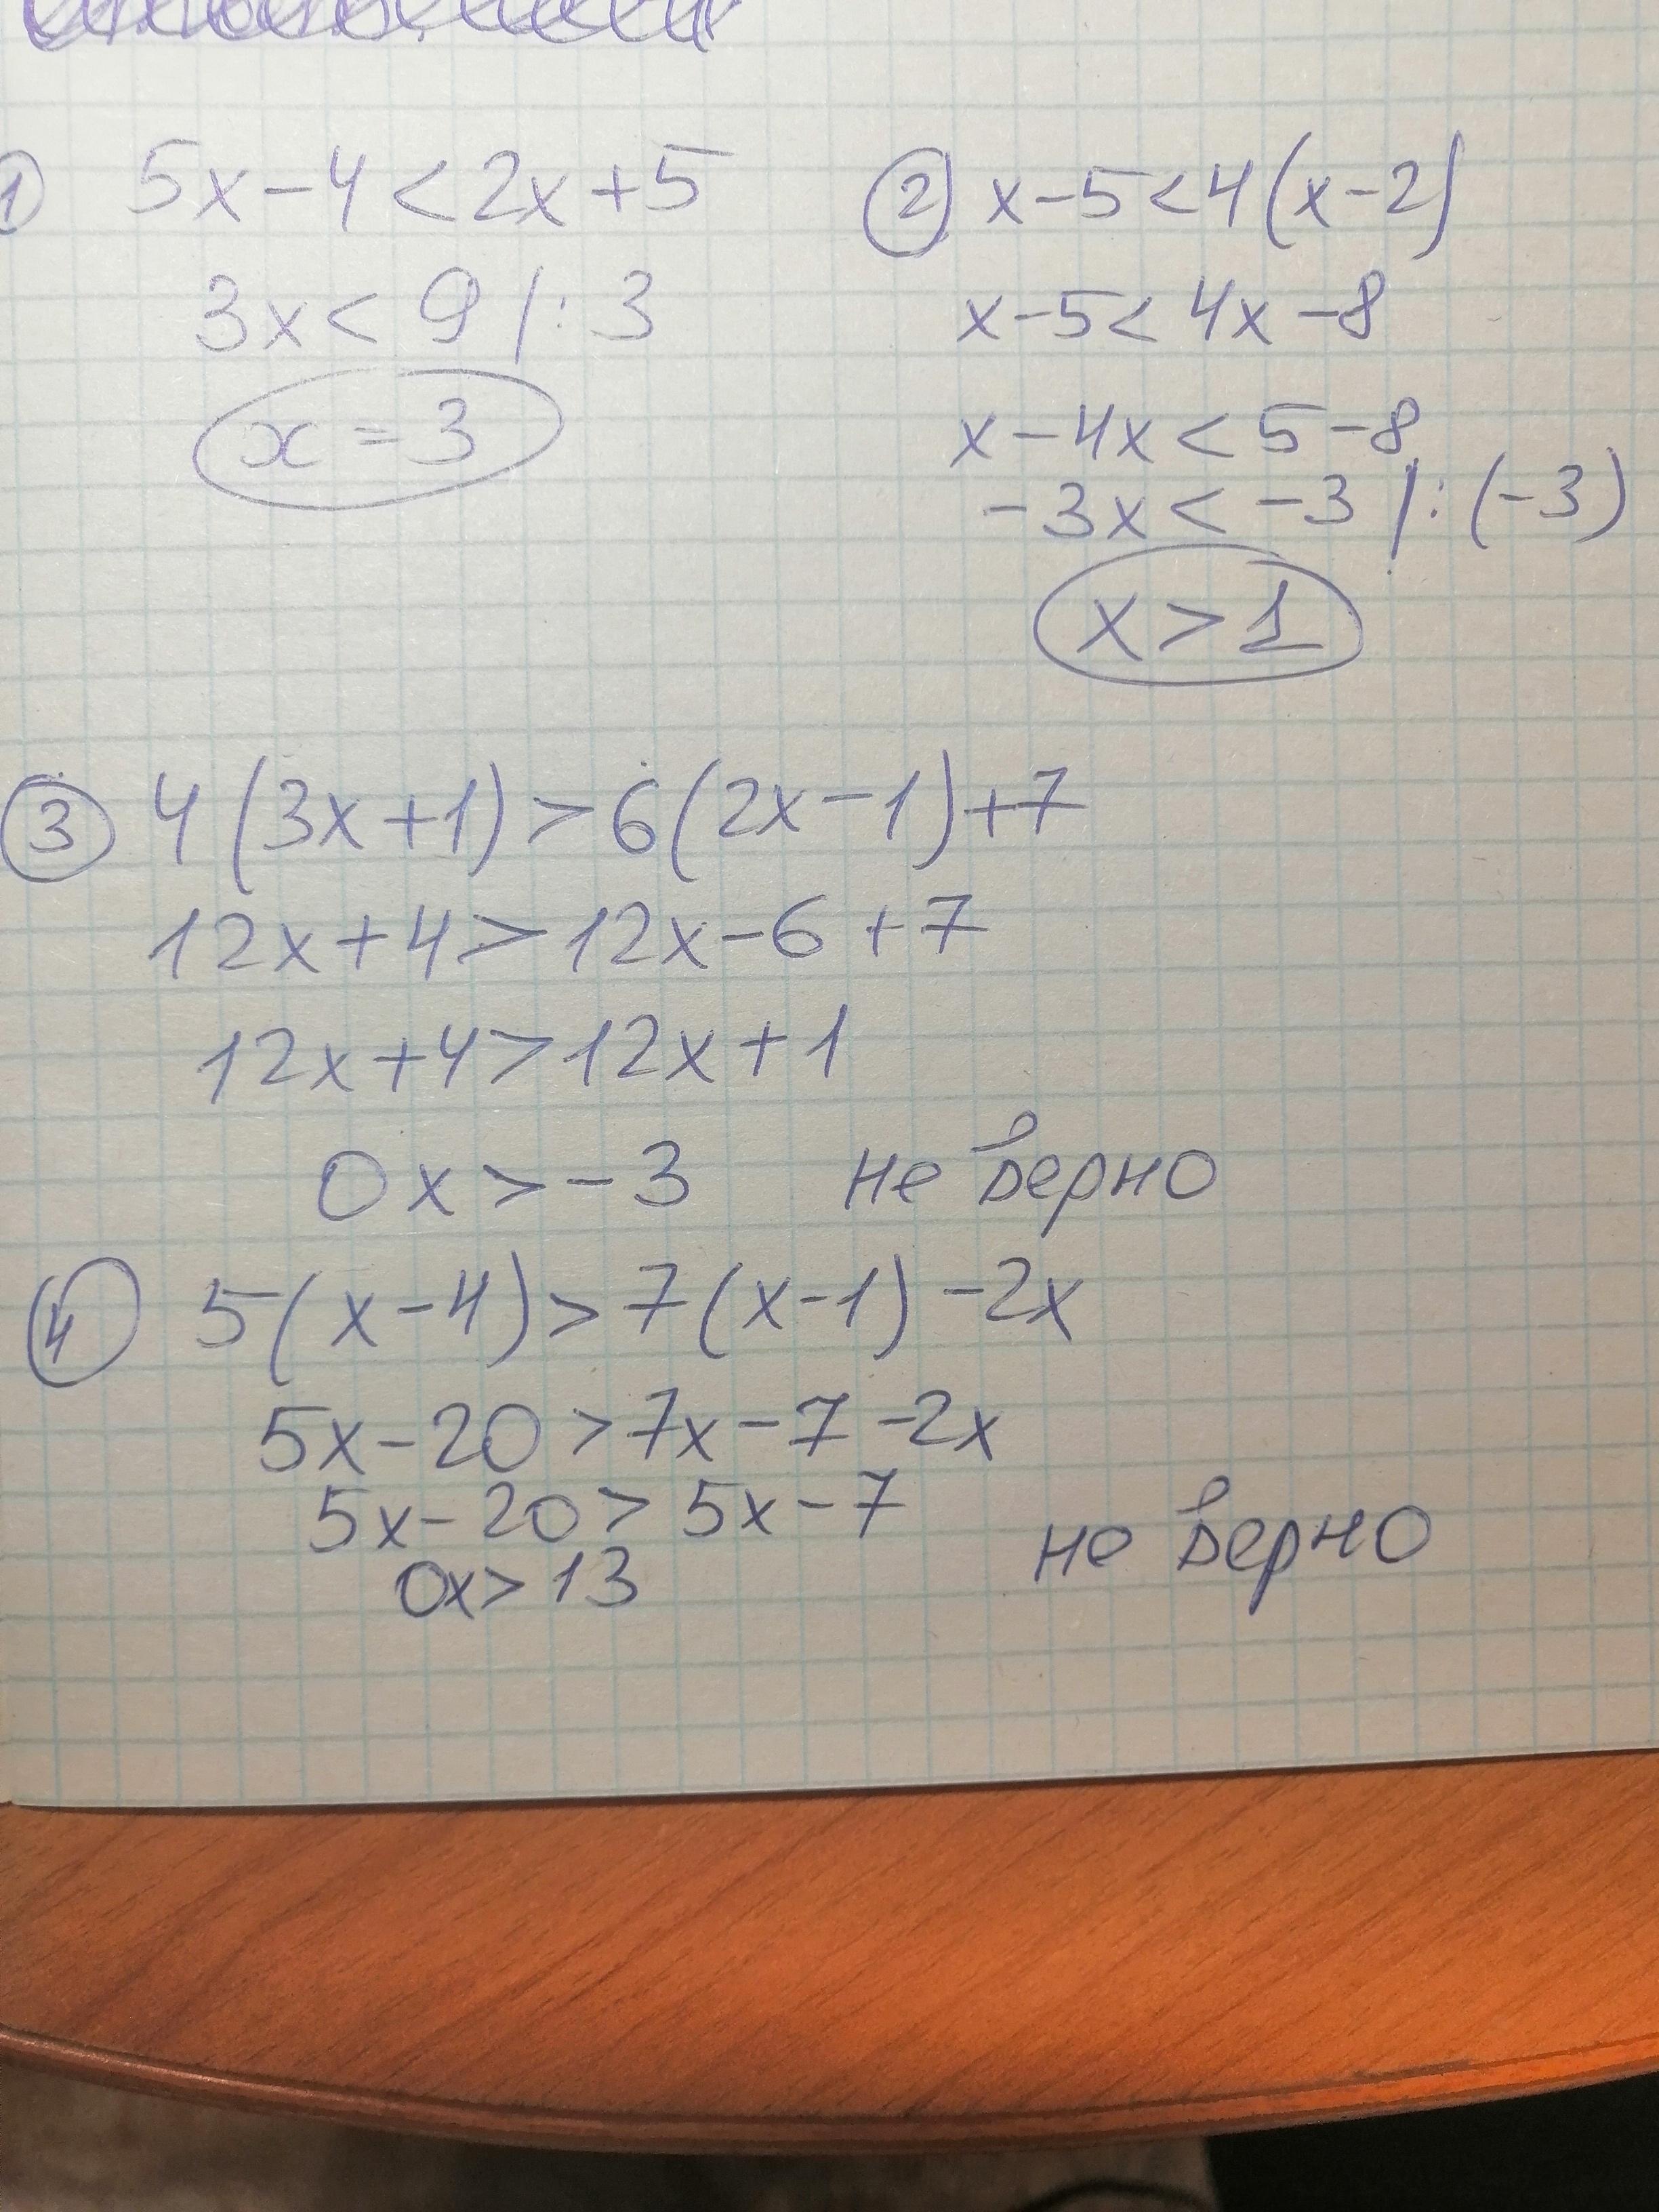 ① 5x-4<2x+5
3x<9 |:3
x=3
② x-5<4(x-2)
x-5<4x-8
x-4x<5-8
-3x<-3 |:(-3)
x>1
③ 4(3x+1)>6(2x-1)+7
12x+4>12x-6+7
12x+4>12x+1
0x>-3 не верно
④ 5(x-4)>7(x-1)-2x
5x-20>7x-7-2x
5x-20>5x-7
0x>13 не верно